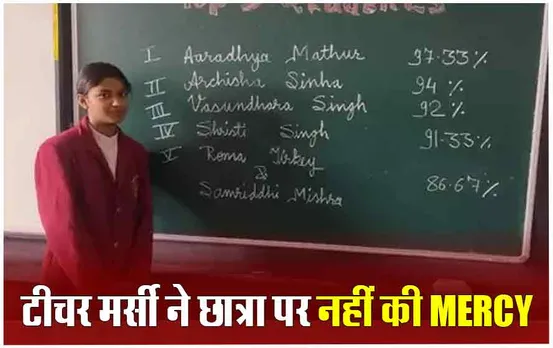 Top 5 Students
I Aaradhya Mathur 97.33%
II Archisha Sinha 94%
III Vasundhara Singh 92%
IV Shristi Singh 91.33%
V Roma Tirkey
&
Samriddhi Mishra 86.67%
टीचर मर्सी ने छात्रा पर नहीं की MERCY